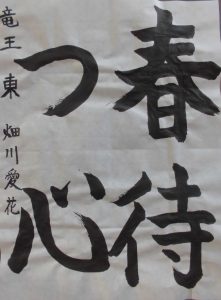 春待
つ心
竜王東 畑川愛花